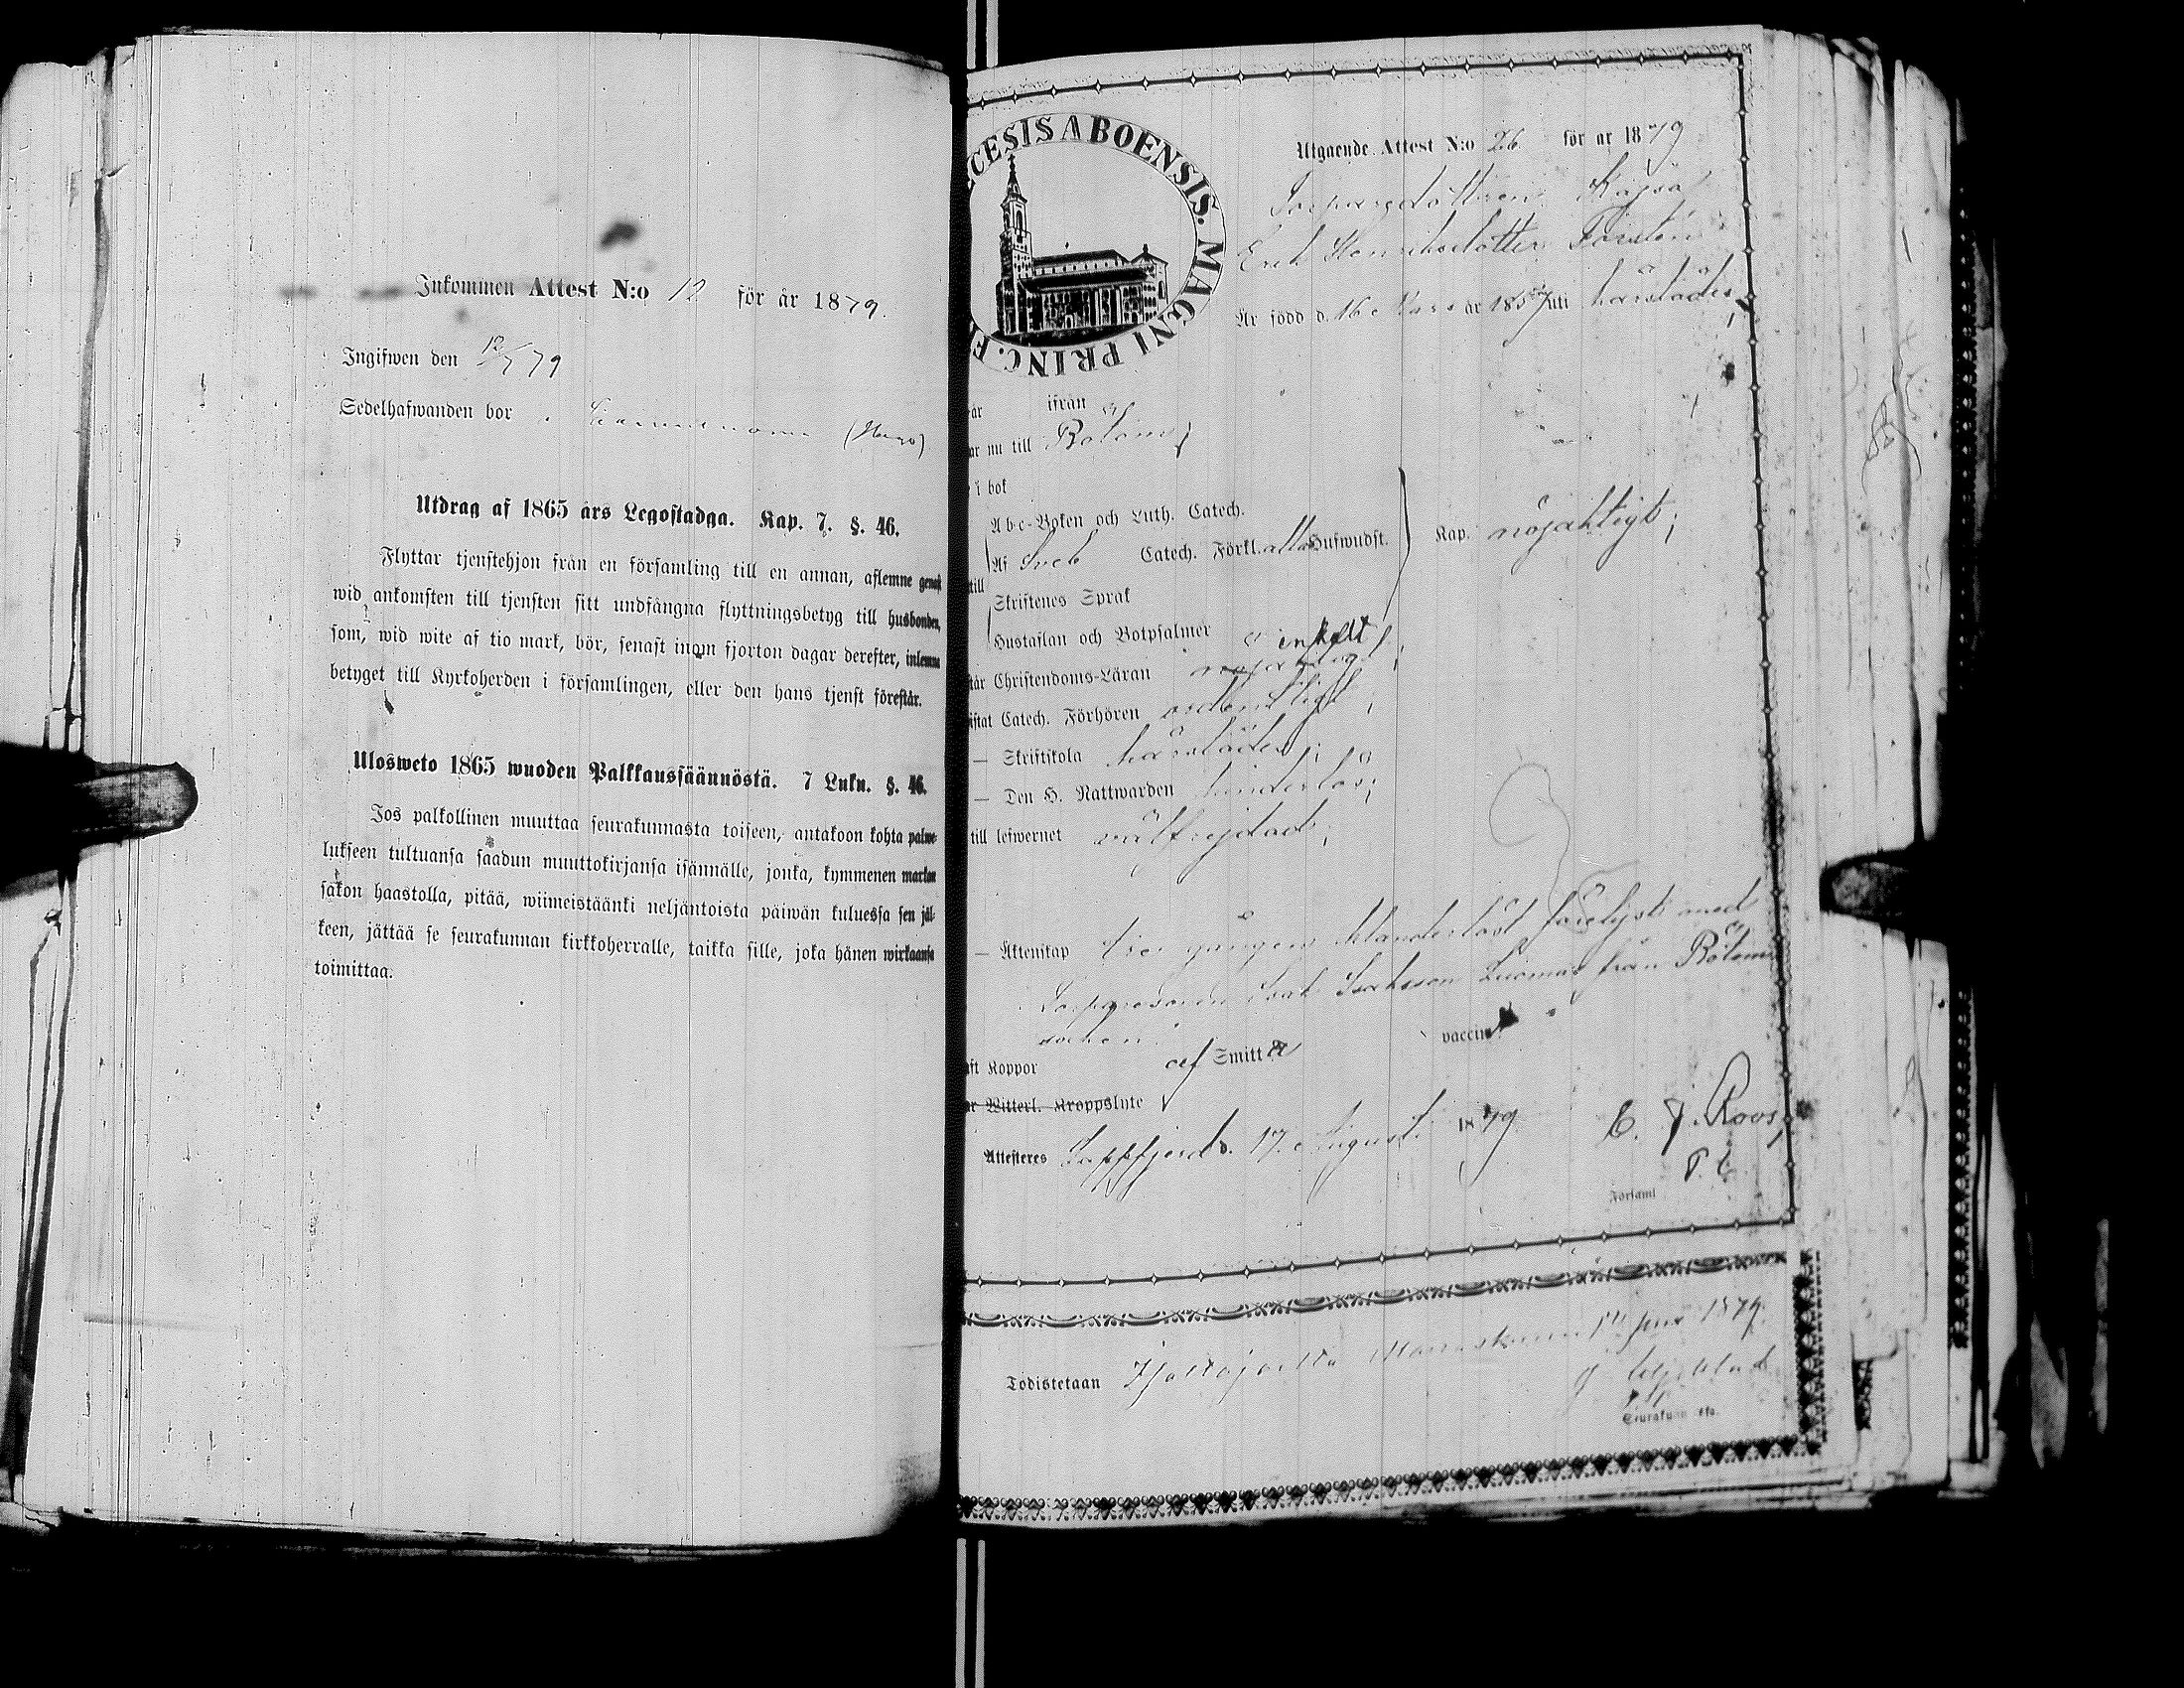 Inkommen Attest N:o 12 för år 1879.
Ingifwen den 12/7 79
Sedelhafwanden bor
Utdrag af 1865 års Legostadga. Kap. 7. §. 46.
Flyttar tjenstehjon från en församling till en annan, aflemne genast
wid ankomsten till tjensten sitt undfångna flyttningsbetyg till husbonden,
som, wid wite af tio mark, bör, senast inom fjorton dagar derefter, inlemna
betyget till Kyrkoherden i församlingen, eller den hans tjenst förestår.
Ulosweto 1865 wuoden Palkkaussäännöstä. 7 Luku. §. 46.
Jos palkollinen muuttaa seurakunnasta toiseen, antakoon kohta palwe-
lukseen tultuansa saadun muuttokirjansa isännälle, jonka, kymmenen markan
sakon haastolla, pitää, wiimeistäänki neljäntoista päiwän kuluessa sen jäl-
keen, jättää se seurakunnan kirkkoherralle, taikka sille, joka hänen wirkaansa
toimittaa.
CESIS ABOENSIS. MAGNI PRINC. F
Utgaende Attest N:o 26 för ar 1879
Torparedottren Kajsa
Henriksdotter
Är född d. 16 Mars är 1857 uti härstädes,
är ifrån
ar nu till Rölom;
i bok
Abc-Boken och Luth. Catech.
till Af Sveb Catech. Förkl. alla Hufwudst. Kap. nöjaktigt;
Skriftenes Språk
Hustaflan och Botpsalmer
enkelt
tår Christendoms-Läran nöjaktigt,
istat Catech. Förhören ordentligt,
— Skriftskola härstädes;
— Den H. Nattwarden hinderlös;
till lefwernet välfrejdad;
— Äktenskap tre gånger klanderlöst förelyst med
Torparesonen Isak Isaksson Luomas från Rölom
socken.
aft Koppor af Smitta vaccin
ar Witterl. Kroppslyte
Attesteres Lappfjerd d. 17 Augusti 1879 C. J. Roos,
Forsaml
Todistetaan 1879.
Seurakun